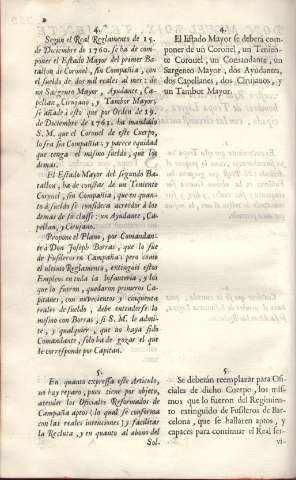 2
4.
Segun el Real Reglamento de 15.
de Diciembre de 1760. se ha de com-
poner el Estado Mayor del primer Ba-
tallon de Coronel, sin Compañia, con
el sueldo de dos mil reales al mes: de
un Sargento Mayor, Ayudante, Ca-
pellan, Cirujano, y Tambor Mayor;
se añade à esto que por Orden de 19.
de Diciembre de 1761. ha mandado
S. M. que el Coronel de este Cuerpo,
lo sea sin Compañia; y parece equidad
que tenga el mismo sueldo, que los
demas.
El Estado Mayor del segundo Ba-
tallon, ha de constar de un Teniente
Coronel, sin Compañia, que en quan-
to à sueldo se considera acreedor à los
demas de su classe: un Ayudante, Ca-
pellan, y Cirujano.
Propone el Plano, por Comandan-
te à Don Joseph Borras, que lo fue
de Fusileros en Campaña; pero como
el ultimo Reglamento, extinguiò estos
Empleos en toda la Infanteria, y los
que lo fueron, quedaron primeros Ca-
pitanes, con novecientos y cinquenta
reales de sueldo, debe entenderse lo
mismo con Borras; si S. M. le admi-
te, y qualquier, que no haya sido
Comandante, solo ha de gozar el que
le corresponde por Capitan.
5.
En quanto expressa este Articulo,
no hay reparo, pues tiene por objeto,
atender los Oficiales Reformados de
Campaña aptos: lo qual se conforma
con las reales intenciones; y facilitar
la Recluta, y en quanto al abono del
Sol-
4.
El Estado Mayor se debera com-
poner de un Coronel, un Tenien-
te Coronel, un Comandante, un
Sargento Mayor, dos Ayudantes,
dos Capellanes, dos Cirujanos, y
un Tambor Mayor.
5.
Se deberán reemplazar para Ofi-
ciales de dicho Cuerpo, los mis-
mos que lo fueron del Regimien-
to extinguido de Fusileros de Bar-
celona, que se hallaren aptos, y
capaces para continuar el Real ser-
vi-